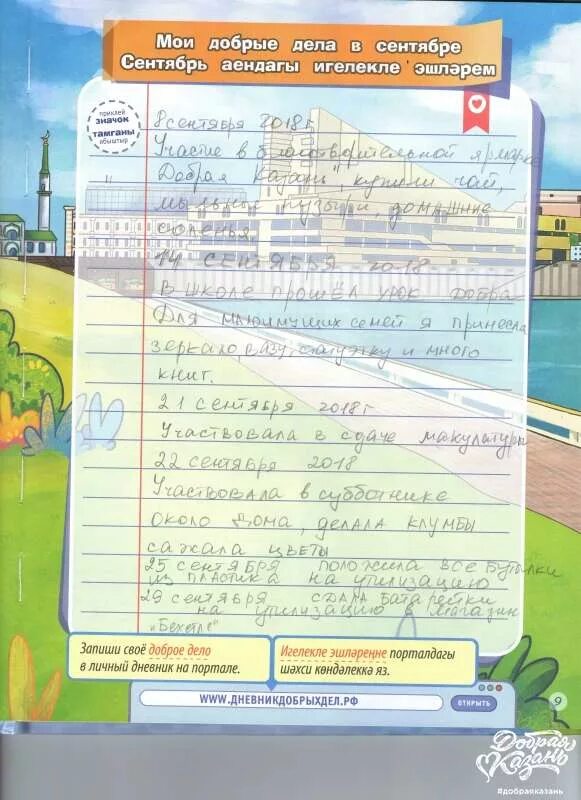 Мои добрые дела в сентябре
Сентябрь аендагы игелекле эшләрем
приклей
значок
тамганы
ябыштыр
8 сентября 2018 г
Участие в благотворительной ярмарке
"Добрая Казань", купили чай,
мыльные пузыри, домашние
соленья.
14 СЕНТЯБРЯ 2018
В школе прошёл урок добра
Для малоимущих семей я принесла
зеркало, вазу, и много
книг.
21 сентября 2018 г
Участвовала в сдаче макулатуры
22 сентября 2018
Участвовала в субботнике
около дома, делала клумбы
сажала цветы
25 сентября положила все бутылки
из пластика на утилизацию
29 сентября сдала батарейки
на утилизацию в магазин
"Бехетле"
Запиши своё доброе дело
в личный дневник на портале.
Игелекле эшләреңне порталдагы
шәхси көндәлеккә яз.
WWW.ДНЕВНИКДОБРЫХДЕЛ.РФ
ОТКРЫТЬ
9
Добрая
Казань
#добраяказань